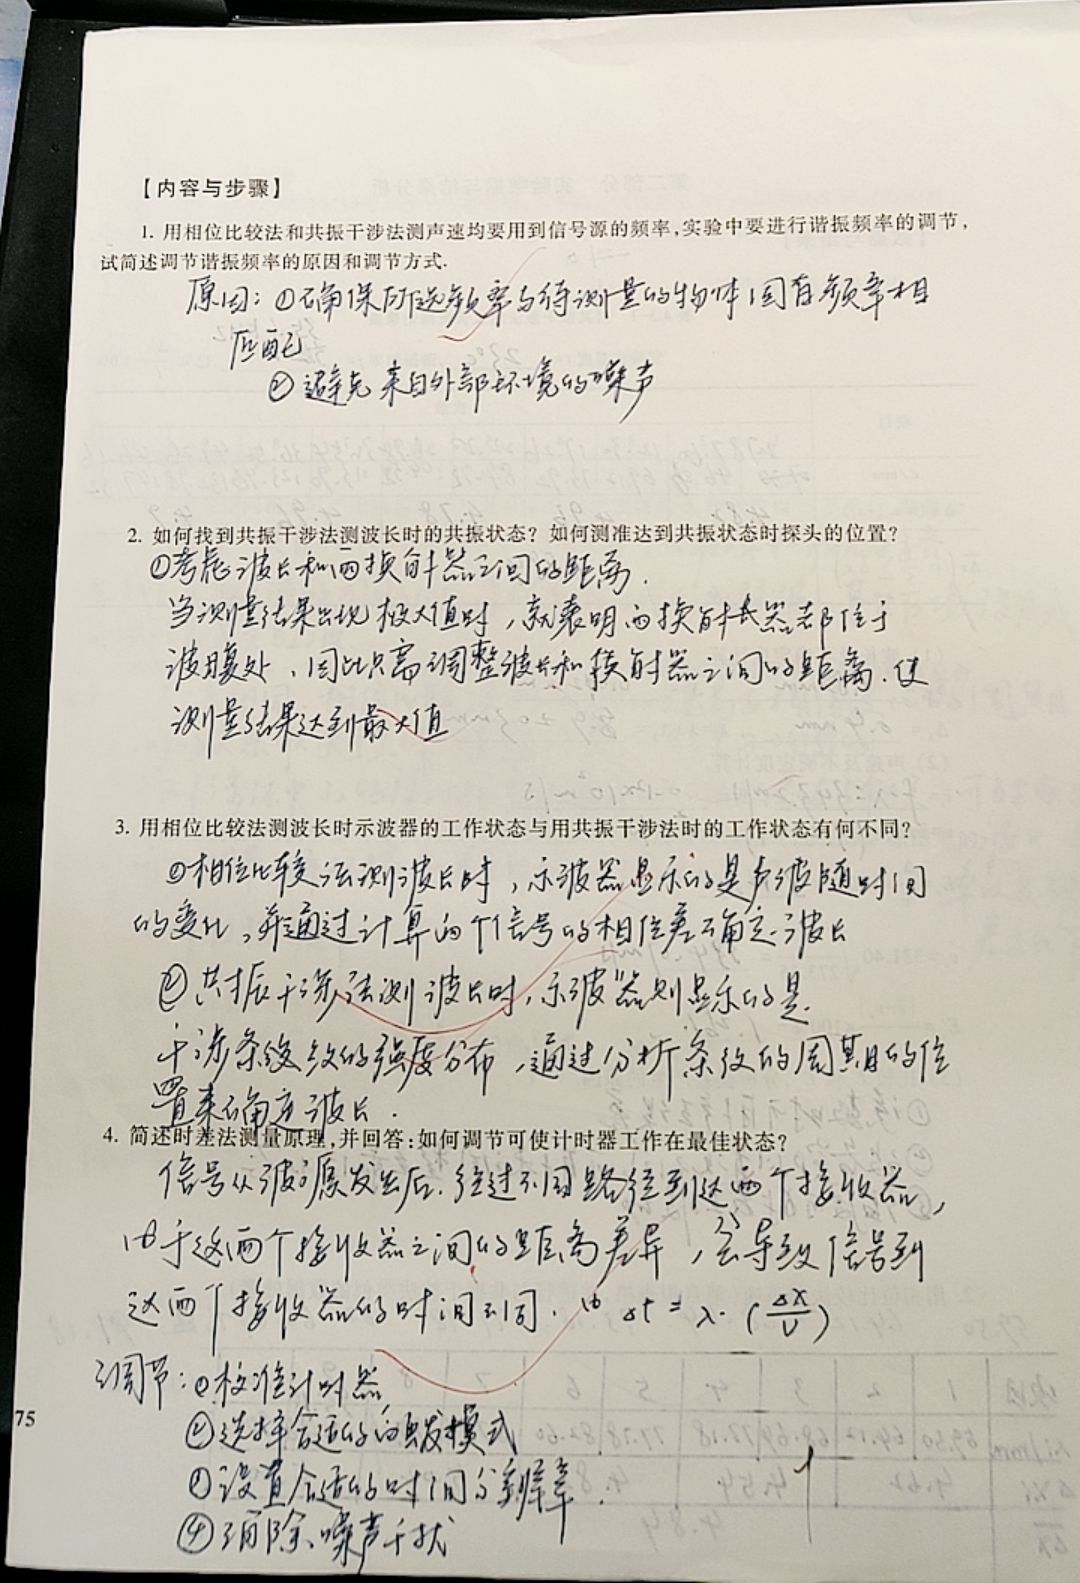 【内容与步骤】
1. 用相位比较法和共振干涉法测声速均要用到信号源的频率,实验中要进行谐振频率的调节,
试简述调节谐振频率的原因和调节方式.
原因：①确保所选频率与待测量的物体固有频率相
匹配
②避免来自外部环境的噪声
2. 如何找到共振干涉法测波长时的共振状态？如何测准达到共振状态时探头的位置？
①考虑波长和两换射器之间的距离.
当测量结果出现极大值时，就表明两换射长器都位于
波腹处、因此只需调整波长和换射器之间的距离.使
测量结果达到最大值
3. 用相位比较法测波长时示波器的工作状态与用共振干涉法时的工作状态有何不同？
①相位比较法测波长时，示波器显示的是声波随时间
的变化，并通过计算两个信号的相位差确定波长
②共振干涉法测波长时,示波器则显示的是.
干涉条纹的强度分布，通过分析条纹的周期的位
置来确定波长.
4. 简述时差法测量原理,并回答:如何调节可使计时器工作在最佳状态？
信号从波源发出后.经过不同路径到达两个接收器，
由于这两个接收器之间的距离差异，会导致信号到
这两个接收器的时间不同. 由 Δt = λ·(ΔX/V)
调节：①校准计时器
②选择合适的触发模式
③设置合适的时间分辨率.
④消除噪声干扰
75